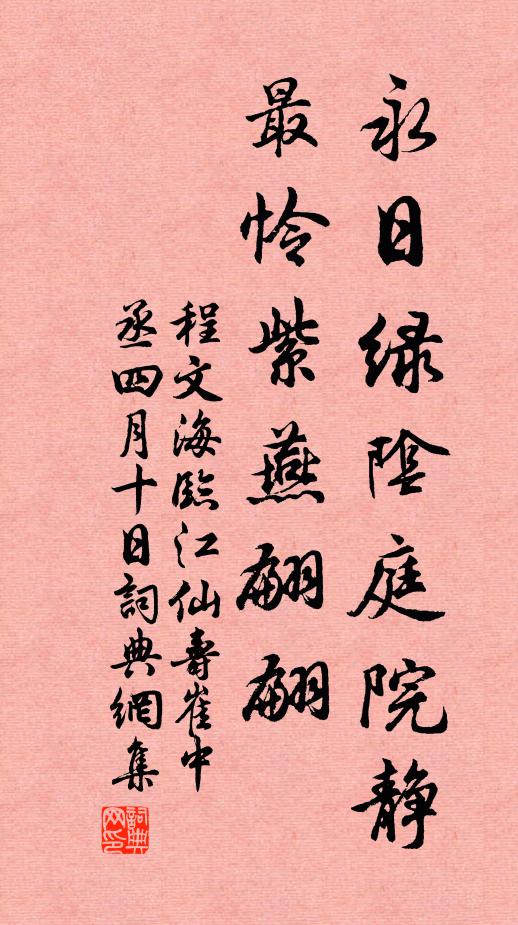 永日绿陰庭院静
最怜紫燕翩翩
程文海臨江仙壽崔中
丞四月十日詞典網集
詞典网印